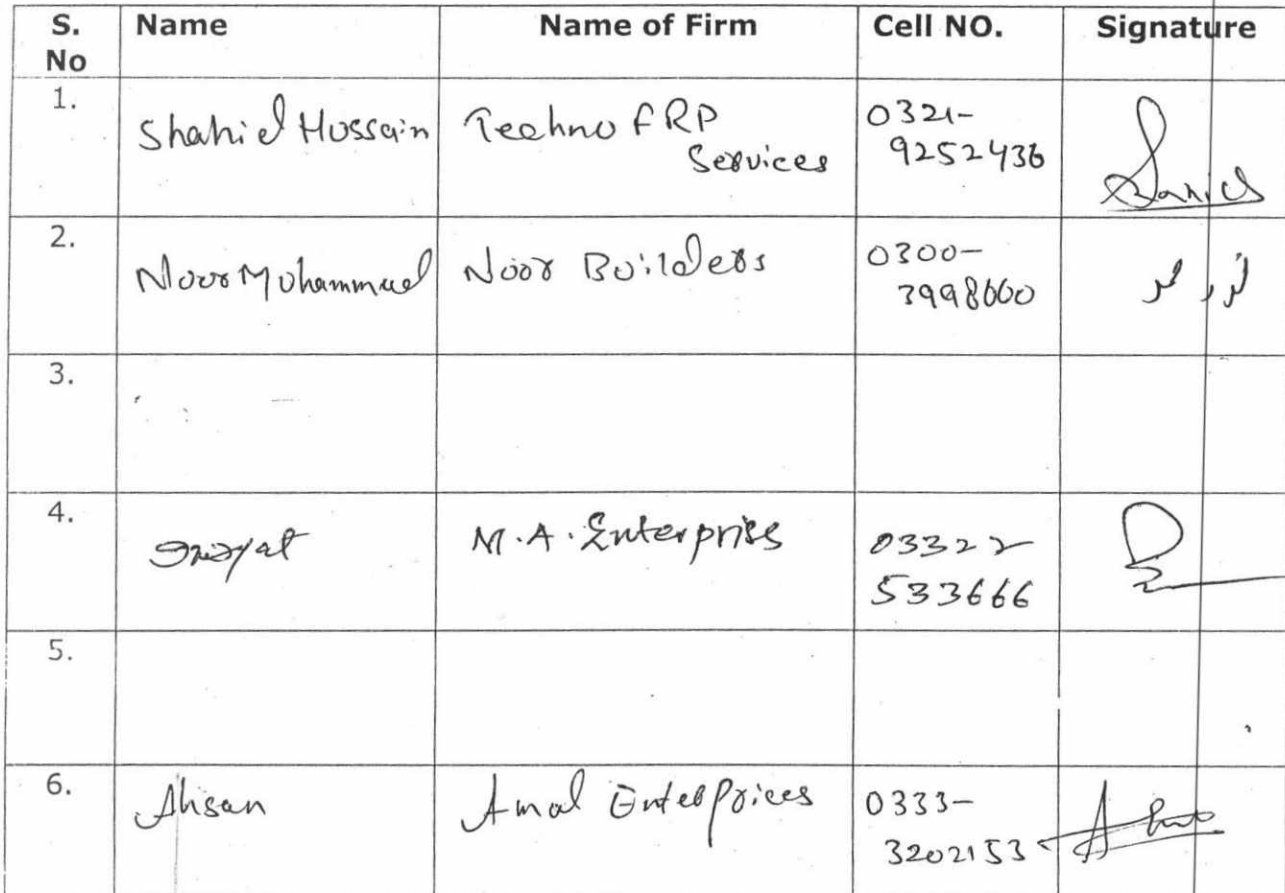 S. No Name Name of Firm Cell NO. Signature
1. Shahid Hussain Techno FRP Services 0321-9252436
2. Noor Muhammad Noor Builders 0300-3998000 نور محمد
3.
4. Inayat M.A. Enterpriss 03322533666
5.
6. Ahsan Amal Enterprices 0333-3202153